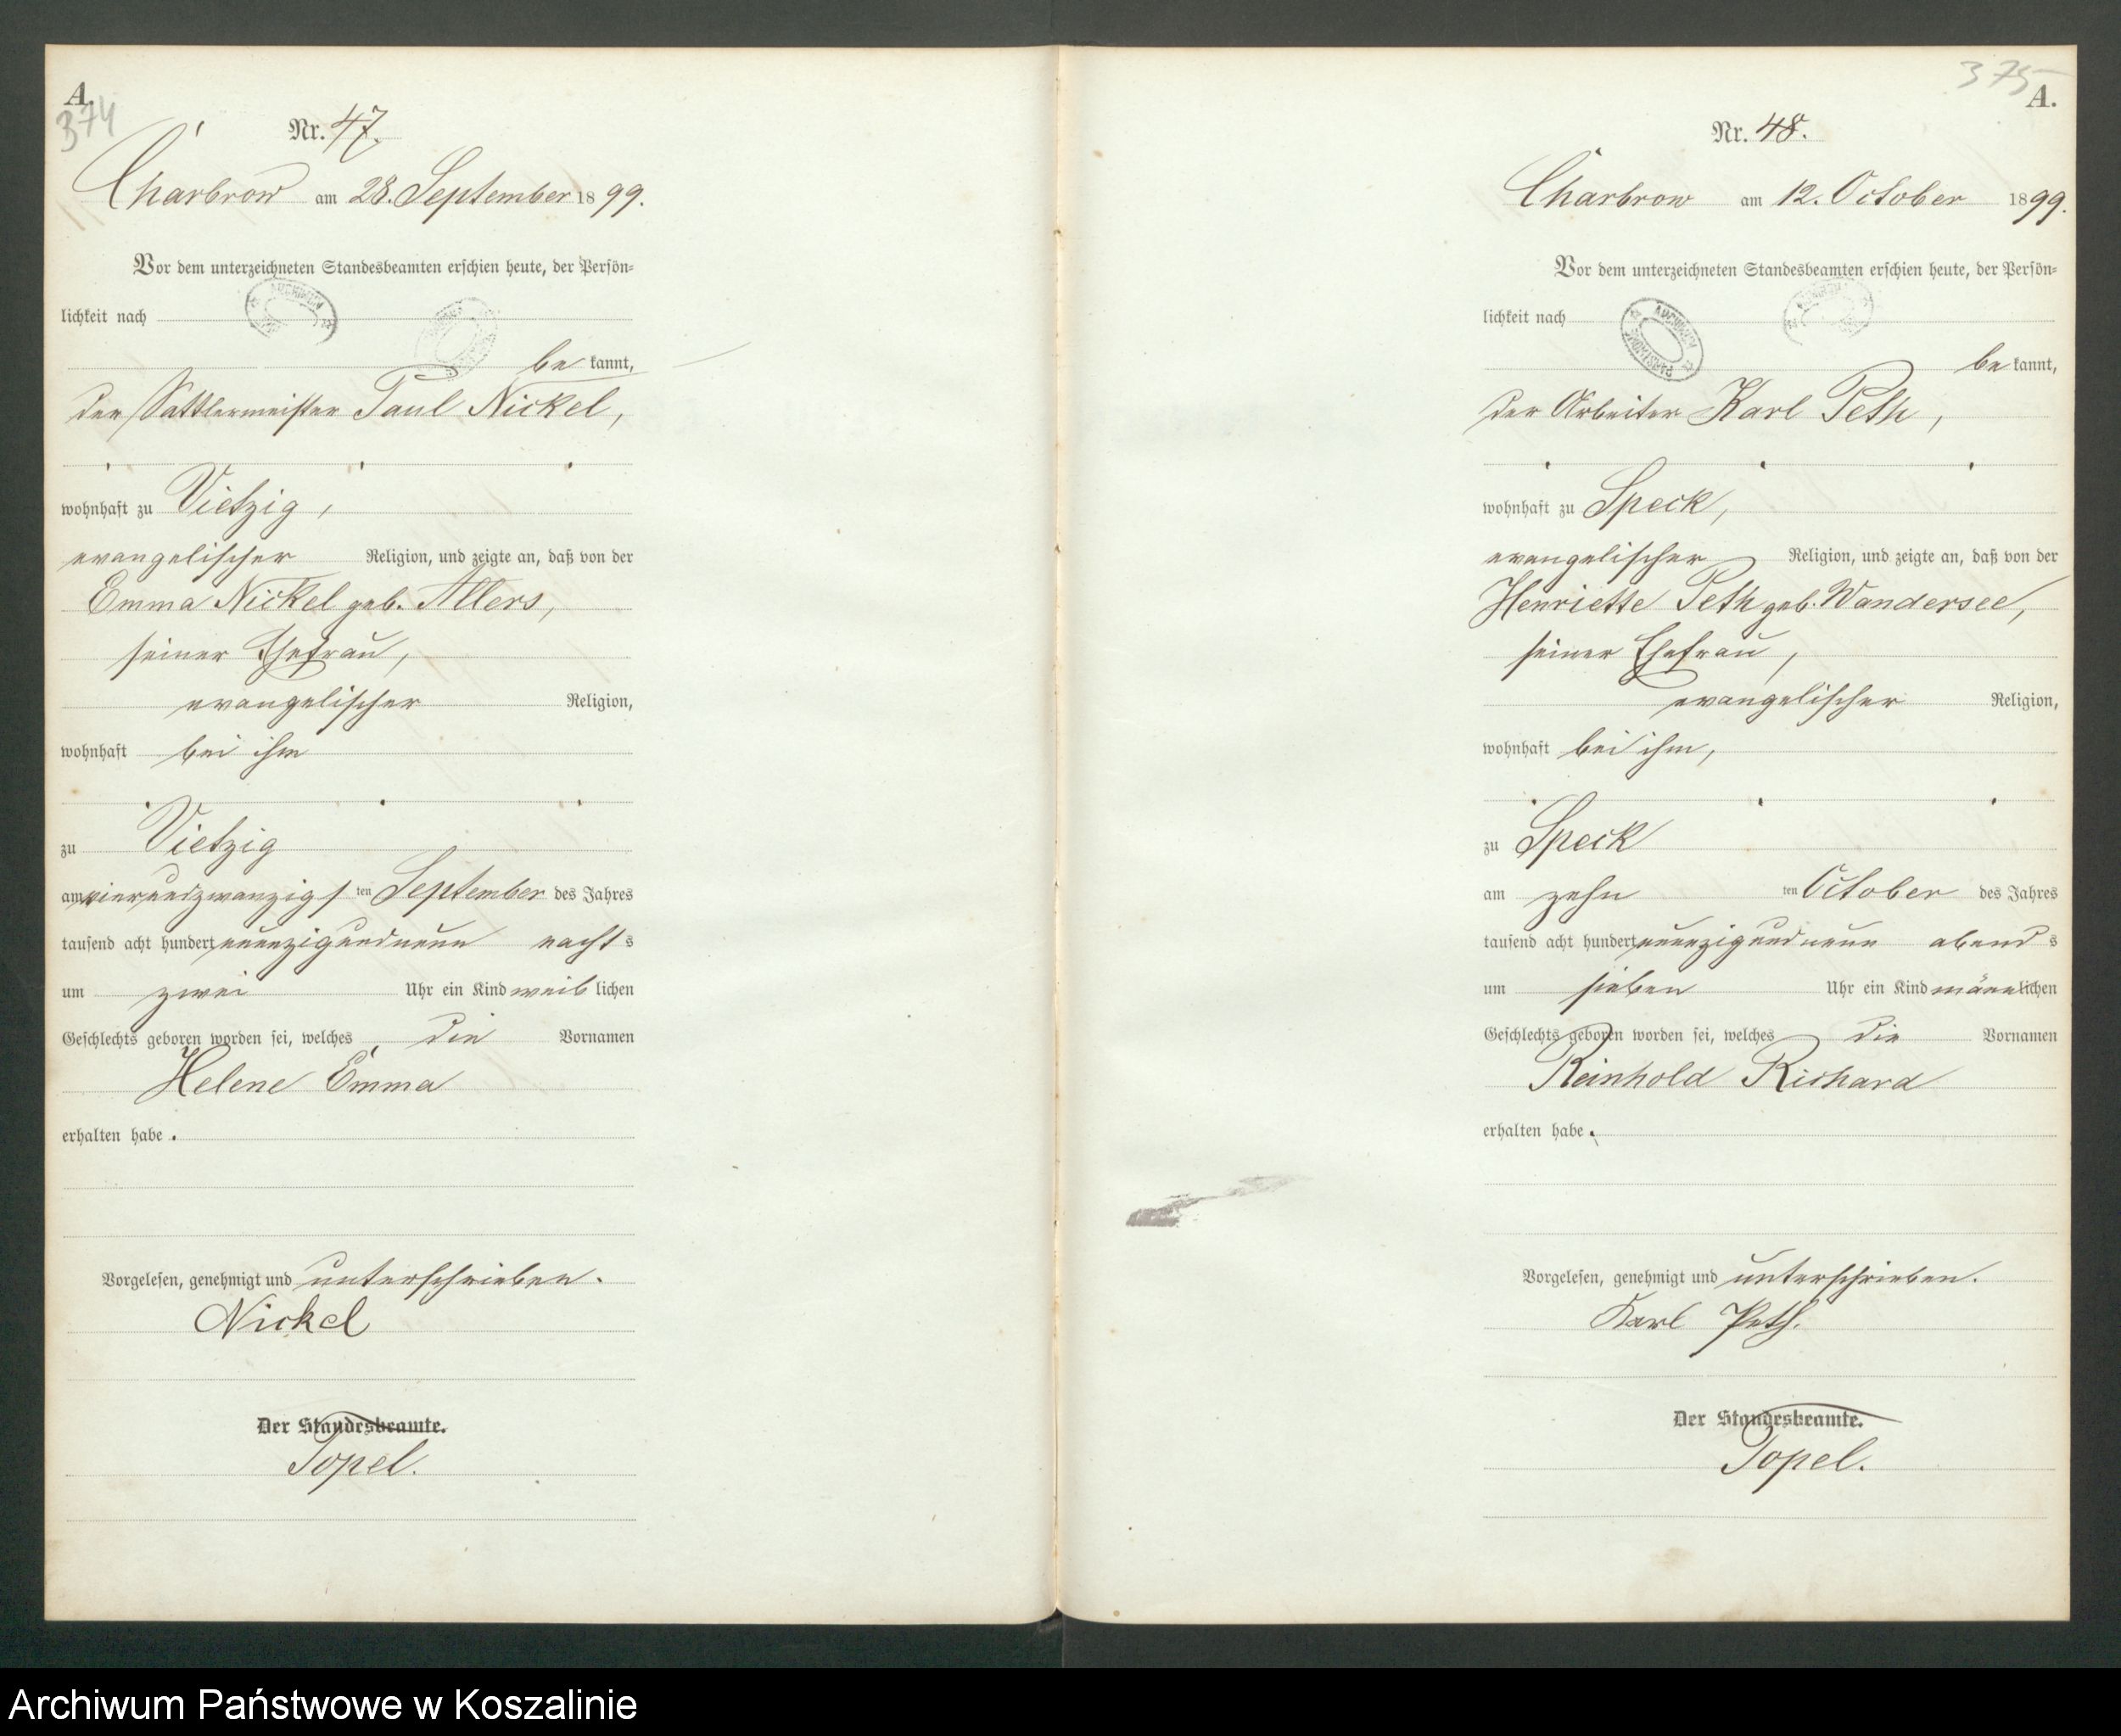 A.
374
Nr. 47.
Charbrow am 28. September 1899.
Vor dem unterzeichneten Standesbeamten erschien heute, der Persön=
lichkeit nach
be kannt,
der Sattlermeister Paul Nickel,
wohnhaft zu Vietzig,
evangelischer Religion, und zeigte an, daß von der
Emma Nickel geb. Allers,
seiner Ehefrau,
evangelischer Religion,
wohnhaft bei ihm
zu Vietzig
am vierundzwanzigsten September des Jahres
tausend acht hundert neunzigundneun nachts
um zwei Uhr ein Kind weiblichen
Geschlechts geboren worden sei, welches die Vornamen
Helene Emma
erhalten habe.
Vorgelesen, genehmigt und unterschrieben.
Nickel
Der Standesbeamte.
Topel.
375
A.
Nr. 48.
Charbrow am 12. October 1899.
Vor dem unterzeichneten Standesbeamten erschien heute, der Persön=
lichkeit nach
be kannt,
der Arbeiter Karl Peth,
wohnhaft zu Speck,
evangelischer Religion, und zeigte an, daß von der
Henriette Peth geb. Wandersee,
seiner Ehefrau,
evangelischer Religion,
wohnhaft bei ihm,
zu Speck
am zehnten October des Jahres
tausend acht hundert neunzigundneun abends
um sieben Uhr ein Kind männlichen
Geschlechts geboren worden sei, welches die Vornamen
Reinhold Richard
erhalten habe.
Vorgelesen, genehmigt und unterschrieben.
Karl Peth.
Der Standesbeamte.
Topel.
Archiwum Państwowe w Koszalinie